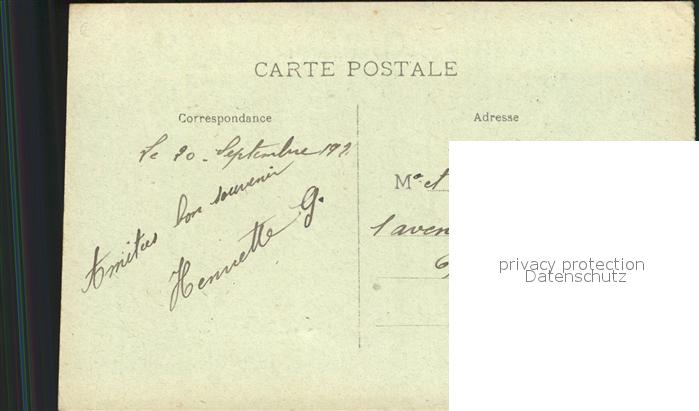 CARTE POSTALE
Correspondance
Le 20 Septembre 192
Amitiés bon souvenir
Henriette G.
Adresse
M et
1 aven
privacy protection
Datenschutz